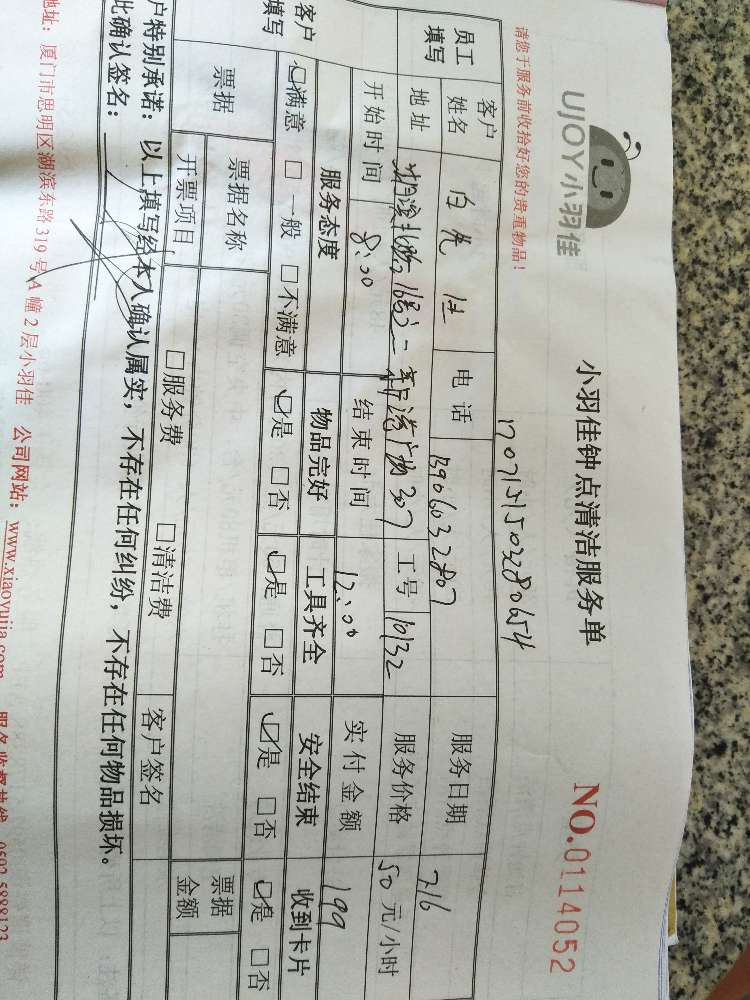 UJOY小羽佳
小羽佳钟点清洁服务单
NO.0114052
请您于服务前收拾好您的贵重物品！
1707151503280654
员工填写
客户姓名 电话 13906032807 服务日期 7.16
地址 307 工号 10132 服务价格 50 元/小时
开始时间 8:00 结束时间 12:00 实付金额 199
客户填写
服务态度 物品完好 工具齐全 安全结束 收到卡片
☑满意 □一般 □不满意 ☑是 □否 ☑是 □否 ☑是 □否 ☑是 □否
票据 票据名称 票据金额
开票项目 □服务费 □清洁费 客户签名
户特别承诺：以上填写经本人确认属实，不存在任何纠纷，不存在任何物品损坏。
此确认签名：
地址：厦门市思明区湖滨东路319号A幢2层小羽佳 公司网站：www.xiaoyujia.com 服务监督热线 0592-5888123